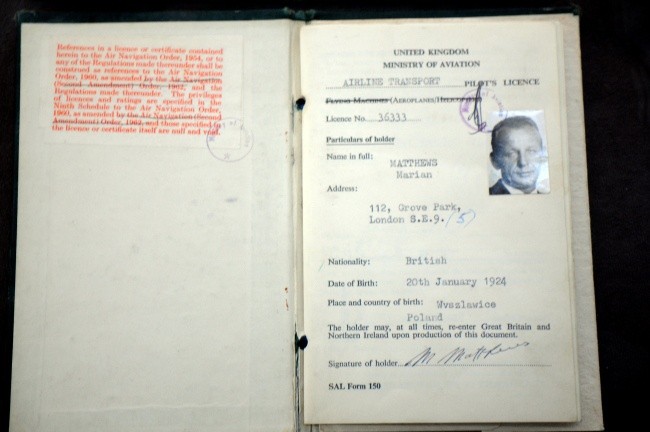 References in a licence or certificate contained
herein to the Air Navigation Order, 1954, or to
any of the Regulations made thereunder shall be
construed as references to the Air Navigation
Order, 1960, as amended by the Air Navigation
(Second Amendment) Order, 1962, and the
Regulations made thereunder. The privileges
of licences and ratings are specified in the
Ninth Schedule to the Air Navigation Order,
1960, as amended by the Air Navigation (Second
Amendment) Order, 1962, and those specified in
the licence or certificate itself are null and void.
UNITED KINGDOM
MINISTRY OF AVIATION
AIRLINE TRANSPORT PILOT'S LICENCE
FLYING MACHINES (AEROPLANES/HELICOPTERS)
Licence No. 36333
Particulars of holder
Name in full: MATTHEWS
Marian
Address:
112, Grove Park,
London S.E.9. (5)
Nationality: British
Date of Birth: 20th January 1924
Place and country of birth: Wvszlawice
Poland
The holder may, at all times, re-enter Great Britain and
Northern Ireland upon production of this document.
Signature of holder M Matthews
SAL Form 150